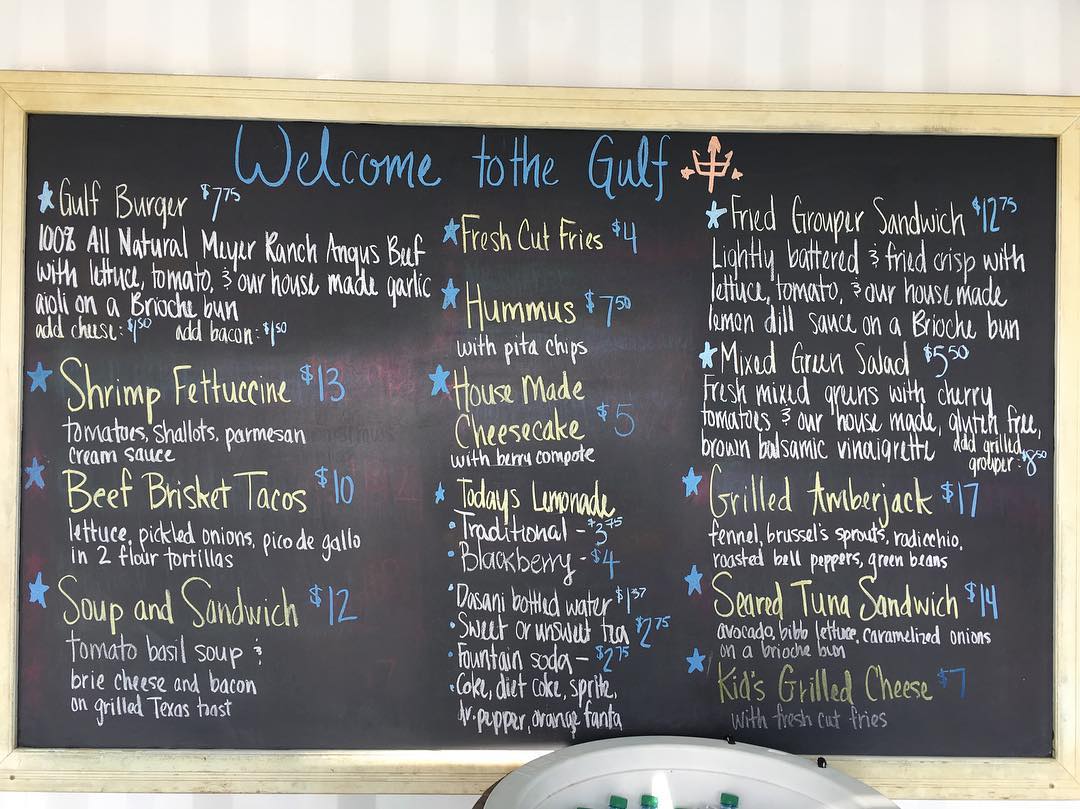 Welcome to the Gulf
Gulf Burger $7.75
100% All Natural Meyer Ranch Angus Beef
with lettuce, tomato, & our house made garlic
aioli on a Brioche bun
add cheese: $1.50 add bacon: $1.50
Shrimp Fettuccine $13
tomatoes, shallots, parmesan
cream sauce
Beef Brisket Tacos $10
lettuce, pickled onions, pico de gallo
in 2 flour tortillas
Soup and Sandwich $12
Tomato basil soup &
brie cheese and bacon
on grilled Texas toast
Fresh Cut Fries $4
Hummus $7.50
with pita chips
House Made
Cheesecake $5
with berry compote
Todays Lemonade
• Traditional - $3.75
• Blackberry - $4
• Dasani bottled water $1.37
• Sweet or unsweet tea $2.75
• Fountain soda - $2.75
• Coke, diet coke, sprite,
dr. pepper, orange fanta
Fried Grouper Sandwich $12.75
Lightly battered & fried crisp with
lettuce, tomato, & our house made
lemon dill sauce on a Brioche bun
Mixed Green Salad $5.50
Fresh mixed greens with cherry
tomatoes & our house made, gluten free,
brown balsamic vinaigrette add grilled
grouper: $8.50
Grilled Amberjack $17
fennel, brussel's sprouts, radicchio,
roasted bell peppers, green beans
Seared Tuna Sandwich $14
avocado, bibb lettuce, caramelized onions
on a brioche bun
Kid's Grilled Cheese $7
with fresh cut fries